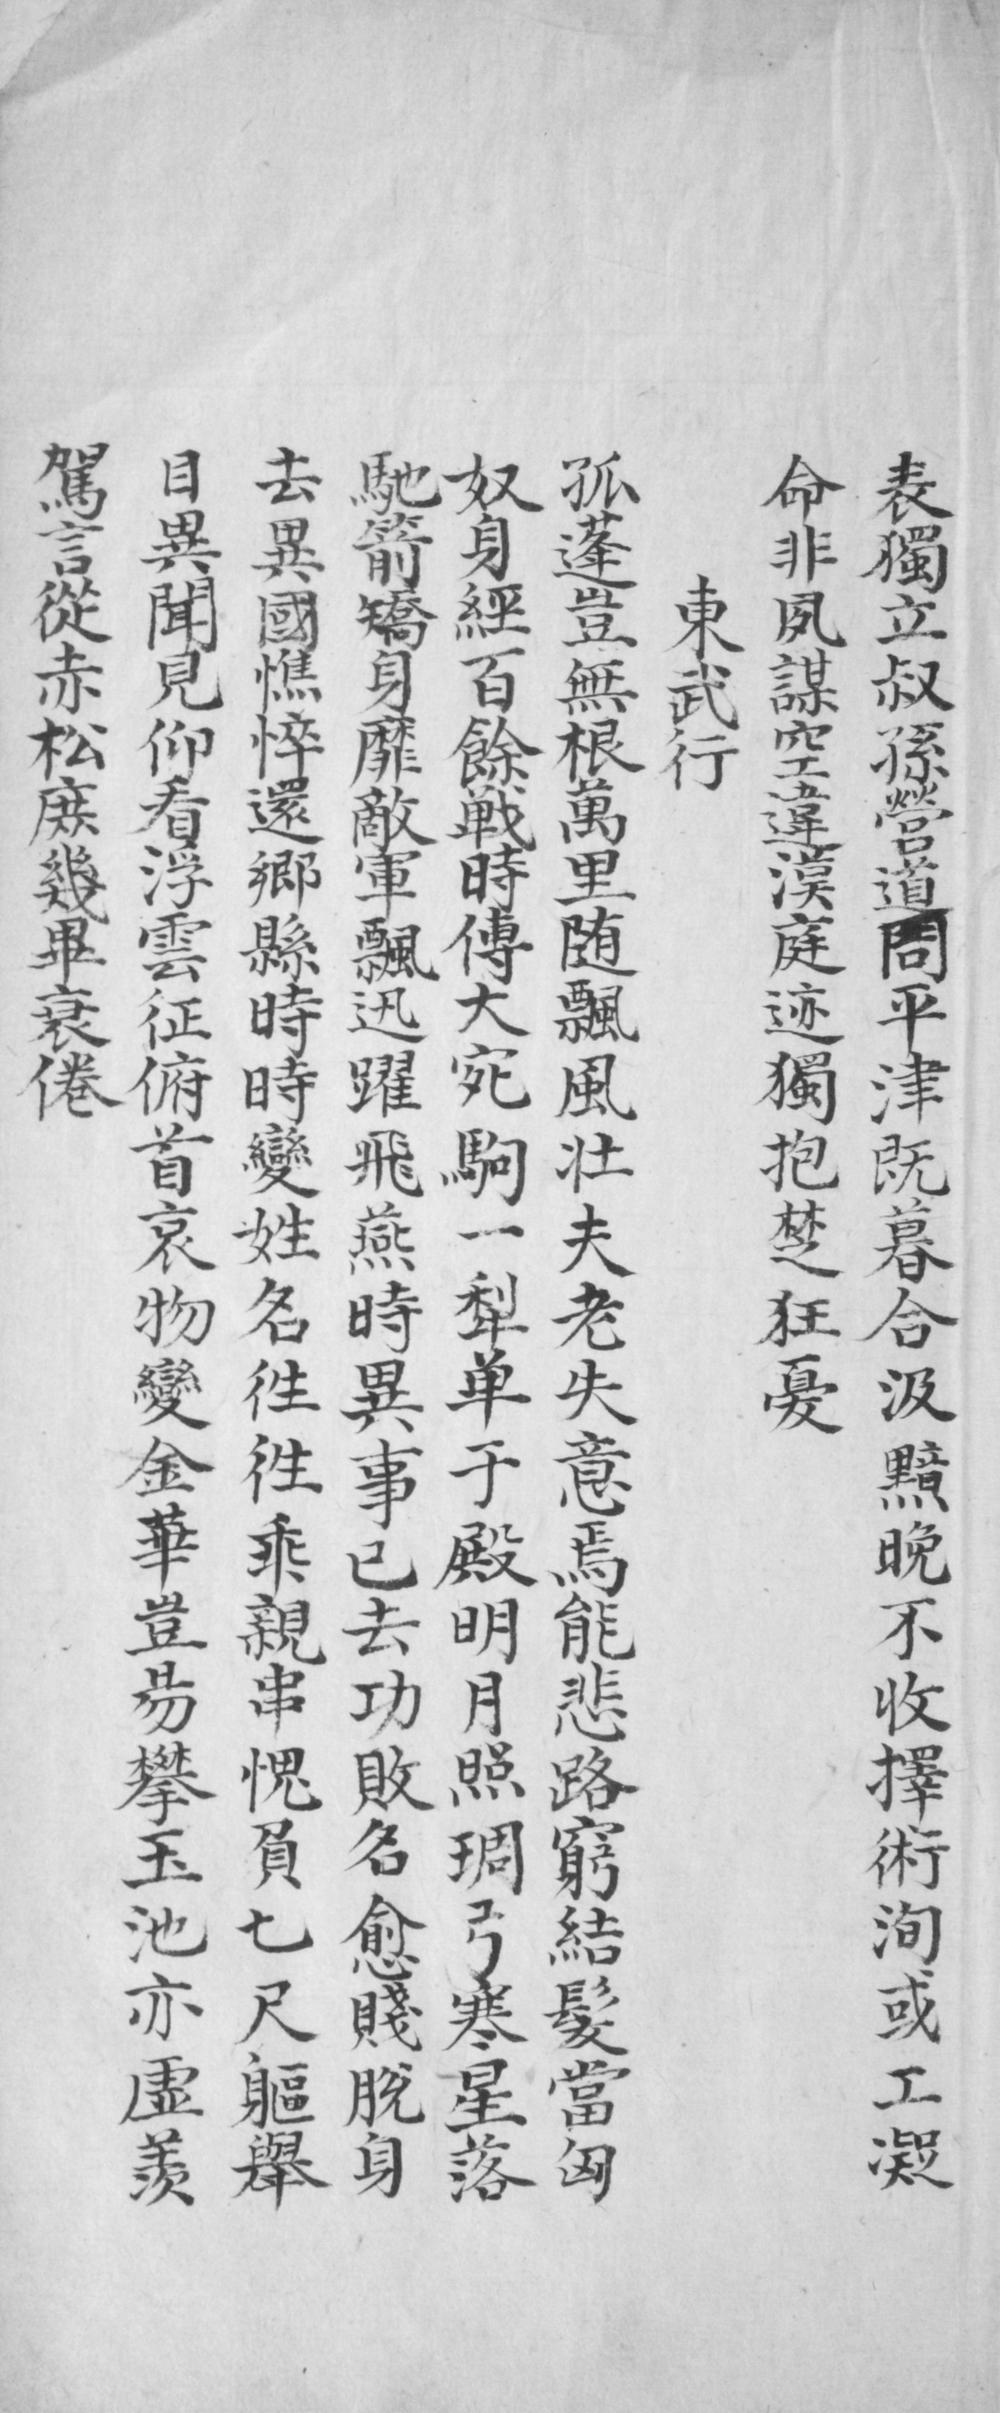 表獨立叔孫營道問平津既暮合汲黯晚不收擇術洵或工凝
命非夙謀空違漠庭迹獨抱楚狂憂
東武行
孤蓬豈無根萬里随飄風壮夫老失意焉能悲路窮結髮當匈
奴身經百餘戦時傳大宛駒一犁单于殿明月照琱弓寒星落
馳箭矯身靡敵軍飄迅躍飛燕時異事已去功敗名愈賤脫身
去異國憔悴還鄉縣時時變姓名徃徃乖親串愧負七尺軀舉
目異聞見仰看浮雲征俯首哀物變金華豈易攀玉池亦虛羨
駕言從赤松庶幾畢衰倦